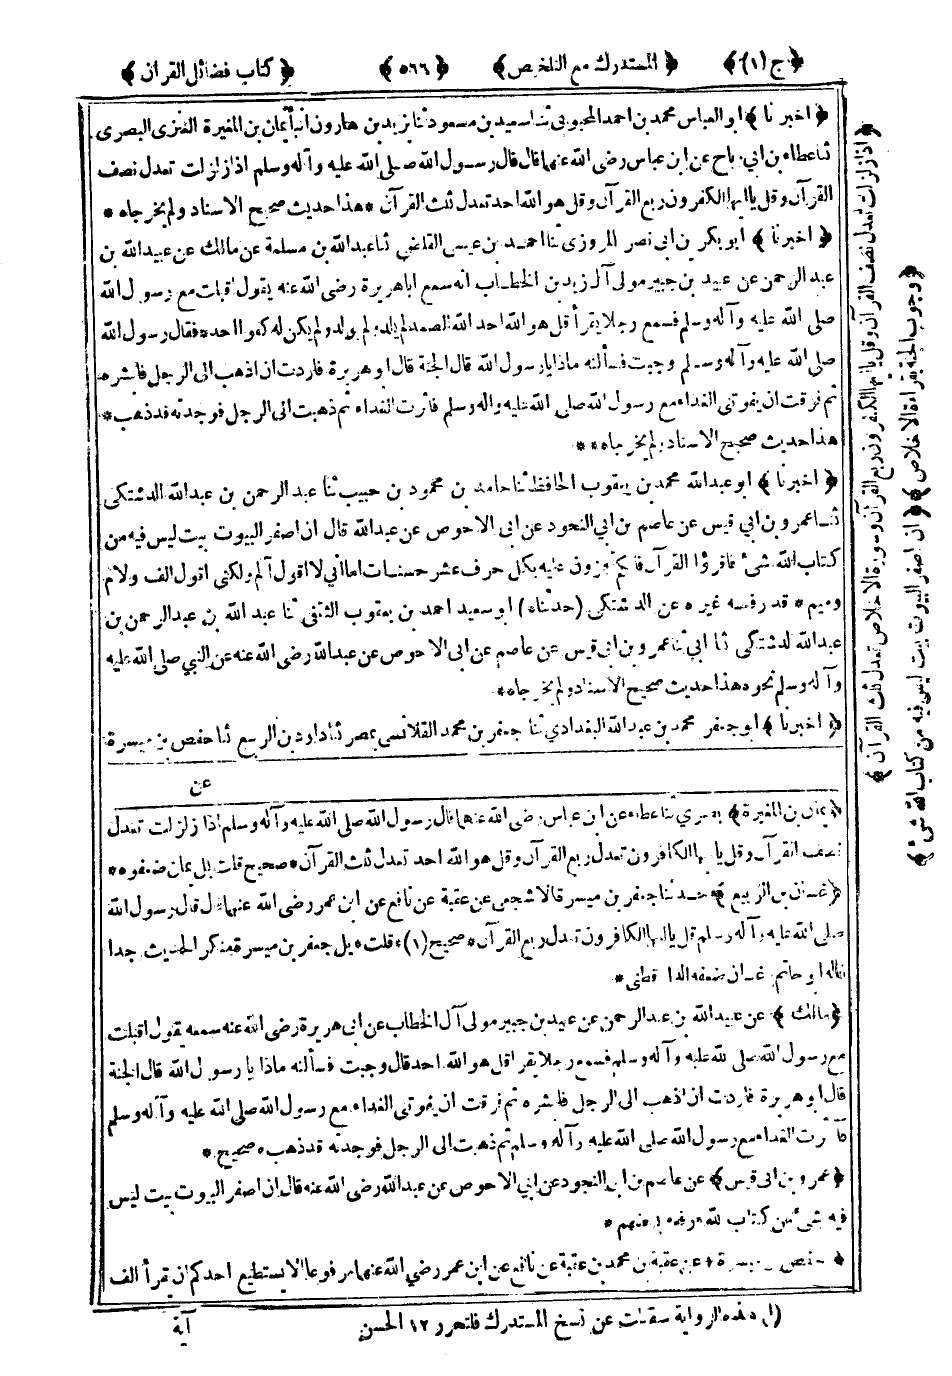 ﴿ ج (١) ﴾ ﴿ المستدرك مع التلخيص ﴾ ﴿ ٥٦٦ ﴾ ﴿ كتاب فضائل القرآن ﴾
﴿ اخبرنا ﴾ ابو العباس محمد بن احمد المحبوبي ثنا سعيد بن مسعود ثنا يزيد بن هارون انبأ يمان بن المغيرة العنزى البصرى
ثنا عطاء بن ابى رباح عن ابن عباس رضى الله عنهما قال قال رسول الله صلى الله عليه وآله وسلم اذا زلزلت تعدل نصف
القرآن وقل يا ايها الكفرون ربع القرآن وقل هو الله احد تعدل ثلث القرآن * هذا حديث صحيح الاسناد ولم يخرجاه *
﴿ اخبرنا ﴾ ابو بكر بن ابى نصر المروزى ثنا احمد بن عيسى القاضى ثنا عبدالله بن مسلمة عن مالك عن عبيدالله بن
عبدالرحمن عن عبيد بن جبير مولى آل زيد بن الخطاب انه سمع اباهريرة رضى الله عنه يقول اقبلت مع رسول الله
صلى الله عليه وآله وسلم فسمع رجلا يقرأ قل هو الله احد الله الصمد لم يلد ولم يولد ولم يكن له كفوا احد * فقال رسول الله
صلى الله عليه وآله وسلم وجبت فسألته ماذا يا رسول الله قال الجنة قال ابو هريرة فاردت ان اذهب الى الرجل فابشره
ثم فرقت ان يفوتنى الغداء مع رسول الله صلى الله عليه واله وسلم فآثرت الغداء ثم ذهبت الى الرجل فوجدته قد ذهب *
هذا حديث صحيح الاسناد ولم يخرجاه * *
﴿ اخبرنا ﴾ ابو عبدالله محمد بن يعقوب الحافظ ثنا حامد بن محمود بن حبيب ثنا عبد الرحمن بن عبدالله الدشتكى
ثنا عمرو بن ابى قيس عن عاصم بن ابي النجود عن ابى الاحوص عن عبدالله قال ان اصفر البيوت بيت ليس فيه من
كتاب الله شئ فاقرؤا القرآن فانكم تؤجرون عليه بكل حرف عشر حسنات اما انى لا اقول آلم ولكنى اقول الف ولام
وميم * قد رفعه غيره عن الدشتكى (حدثناه) ابو سعيد احمد بن يعقوب الثقفى ثنا عبد الله بن عبدالرحمن بن
عبدالله الدشتكى ثنا ابي ثنا عمرو بن ابى قيس عن عاصم عن ابى الاحوص عن عبدالله رضى الله عنه عن النبي صلى الله عليه
وآله وسلم نحوه هذا حديث صحيح الاسناد ولم يخرجاه *
﴿ اخبرنا ﴾ ابو جعفر محمد بن عبدالله البغدادي ثنا جعفر بن محمد القلانسى بمصر ثنا داود بن الربيع ثنا حفص بن ميسرة
عن
﴿ يمان بن المغيرة ﴾ بصري ثنا عطاء عن ابن عباس رضى الله عنهما قال رسول الله صلى الله عليه وآله وسلم اذا زلزلت تعدل
نصف القرآن وقل يا ايها الكافرون تعدل ربع القرآن وقل هو الله احد تعدل ثلث القرآن * صحيح قلت بل يمان ضعفوه *
﴿ غسان بن الربيع ﴾ حدثنا جعفر بن ميسرة الاشجعى عن عقبة عن نافع عن ابن عمر رضى الله عنهما قال قال رسول الله
صلى الله عليه وآله وسلم قل يا ايها الكافرون تعدل ربع القرآن * صحيح (١) * قلت * بل جعفر بن ميسرة منكر الحديث جدا
قاله ابو حاتم وغسان ضعفه الدار قطنى *
﴿ مالك ﴾ عن عبيدالله بن عبدالرحمن عن عبيد بن جبير مولى آل الخطاب عن ابى هريرة رضى الله عنه سمعه يقول اقبلت
مع رسول الله صلى الله عليه وآله وسلم فسمع رجلا يقرأ قل هو الله احد قال وجبت فسألته ماذا يا رسول الله قال الجنة
قال ابو هريرة فاردت ان اذهب الى الرجل فابشره ثم فرقت ان يفوتنى الغداء مع رسول الله صلى الله عليه وآله وسلم
فآثرت الغداء مع رسول الله صلى الله عليه وآله وسلم ثم ذهبت الى الرجل فوجدته قد ذهب * صحيح *
﴿ عمرو بن ابى قيس ﴾ عن عاصم بن ابى النجود عن ابي الاحوص عن عبدالله رضى الله عنه قال ان اصفر البيوت بيت ليس
فيه شئ من كتاب الله رفعه بعضهم *
﴿ حفص بن ميسرة ﴾ عن عقبة بن محمد بن عقبة عن نافع عن ابن عمر رضي الله عنهما مرفوعا الا يستطيع احدكم ان يقرأ الف
(١) هذه الرواية سقطت عن نسخ المستدرك فلتحرر ١٢ الحسن
آية
﴿ اذا زلزلت تعدل نصف القرآن وقل يا ايها الكفرون ربع القرآن وسورة الاخلاص تعدل ثلث القرآن ﴾
﴿ وجوب الجنة بقراءة الاخلاص ﴾ ﴿ ان اصفر البيوت بيت ليس فيه من كتاب الله شئ ﴾